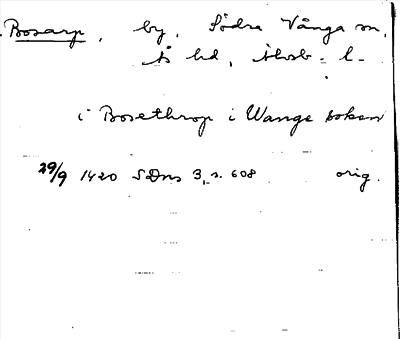 Bosarp, by, Södra Vånga sn,
Ås hd, Älvsb. l.
i Bosethorp i Wange sokan
29/9 1420 SDns 3, s. 608 orig.